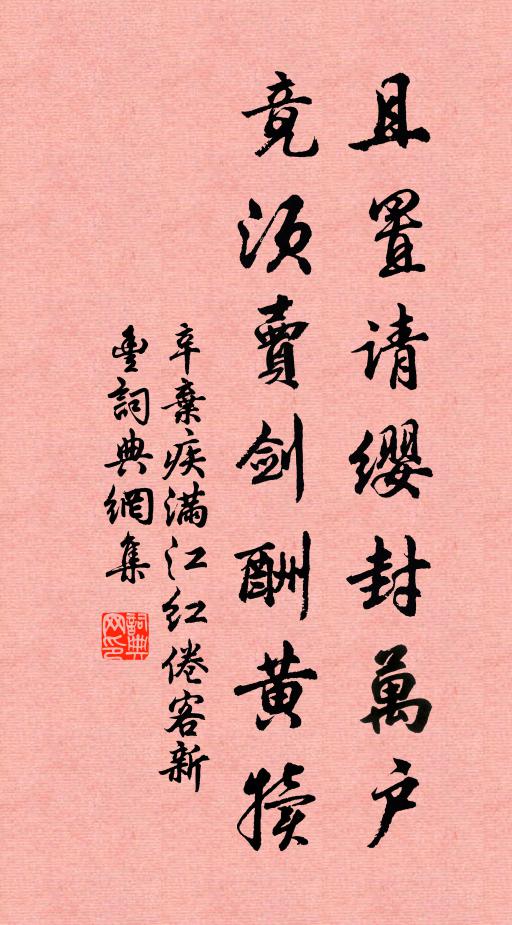 且置请缨封萬户
竟须賣剑酬黄犊
辛棄疾滿江红倦客新
豐詞典網集
詞典网印